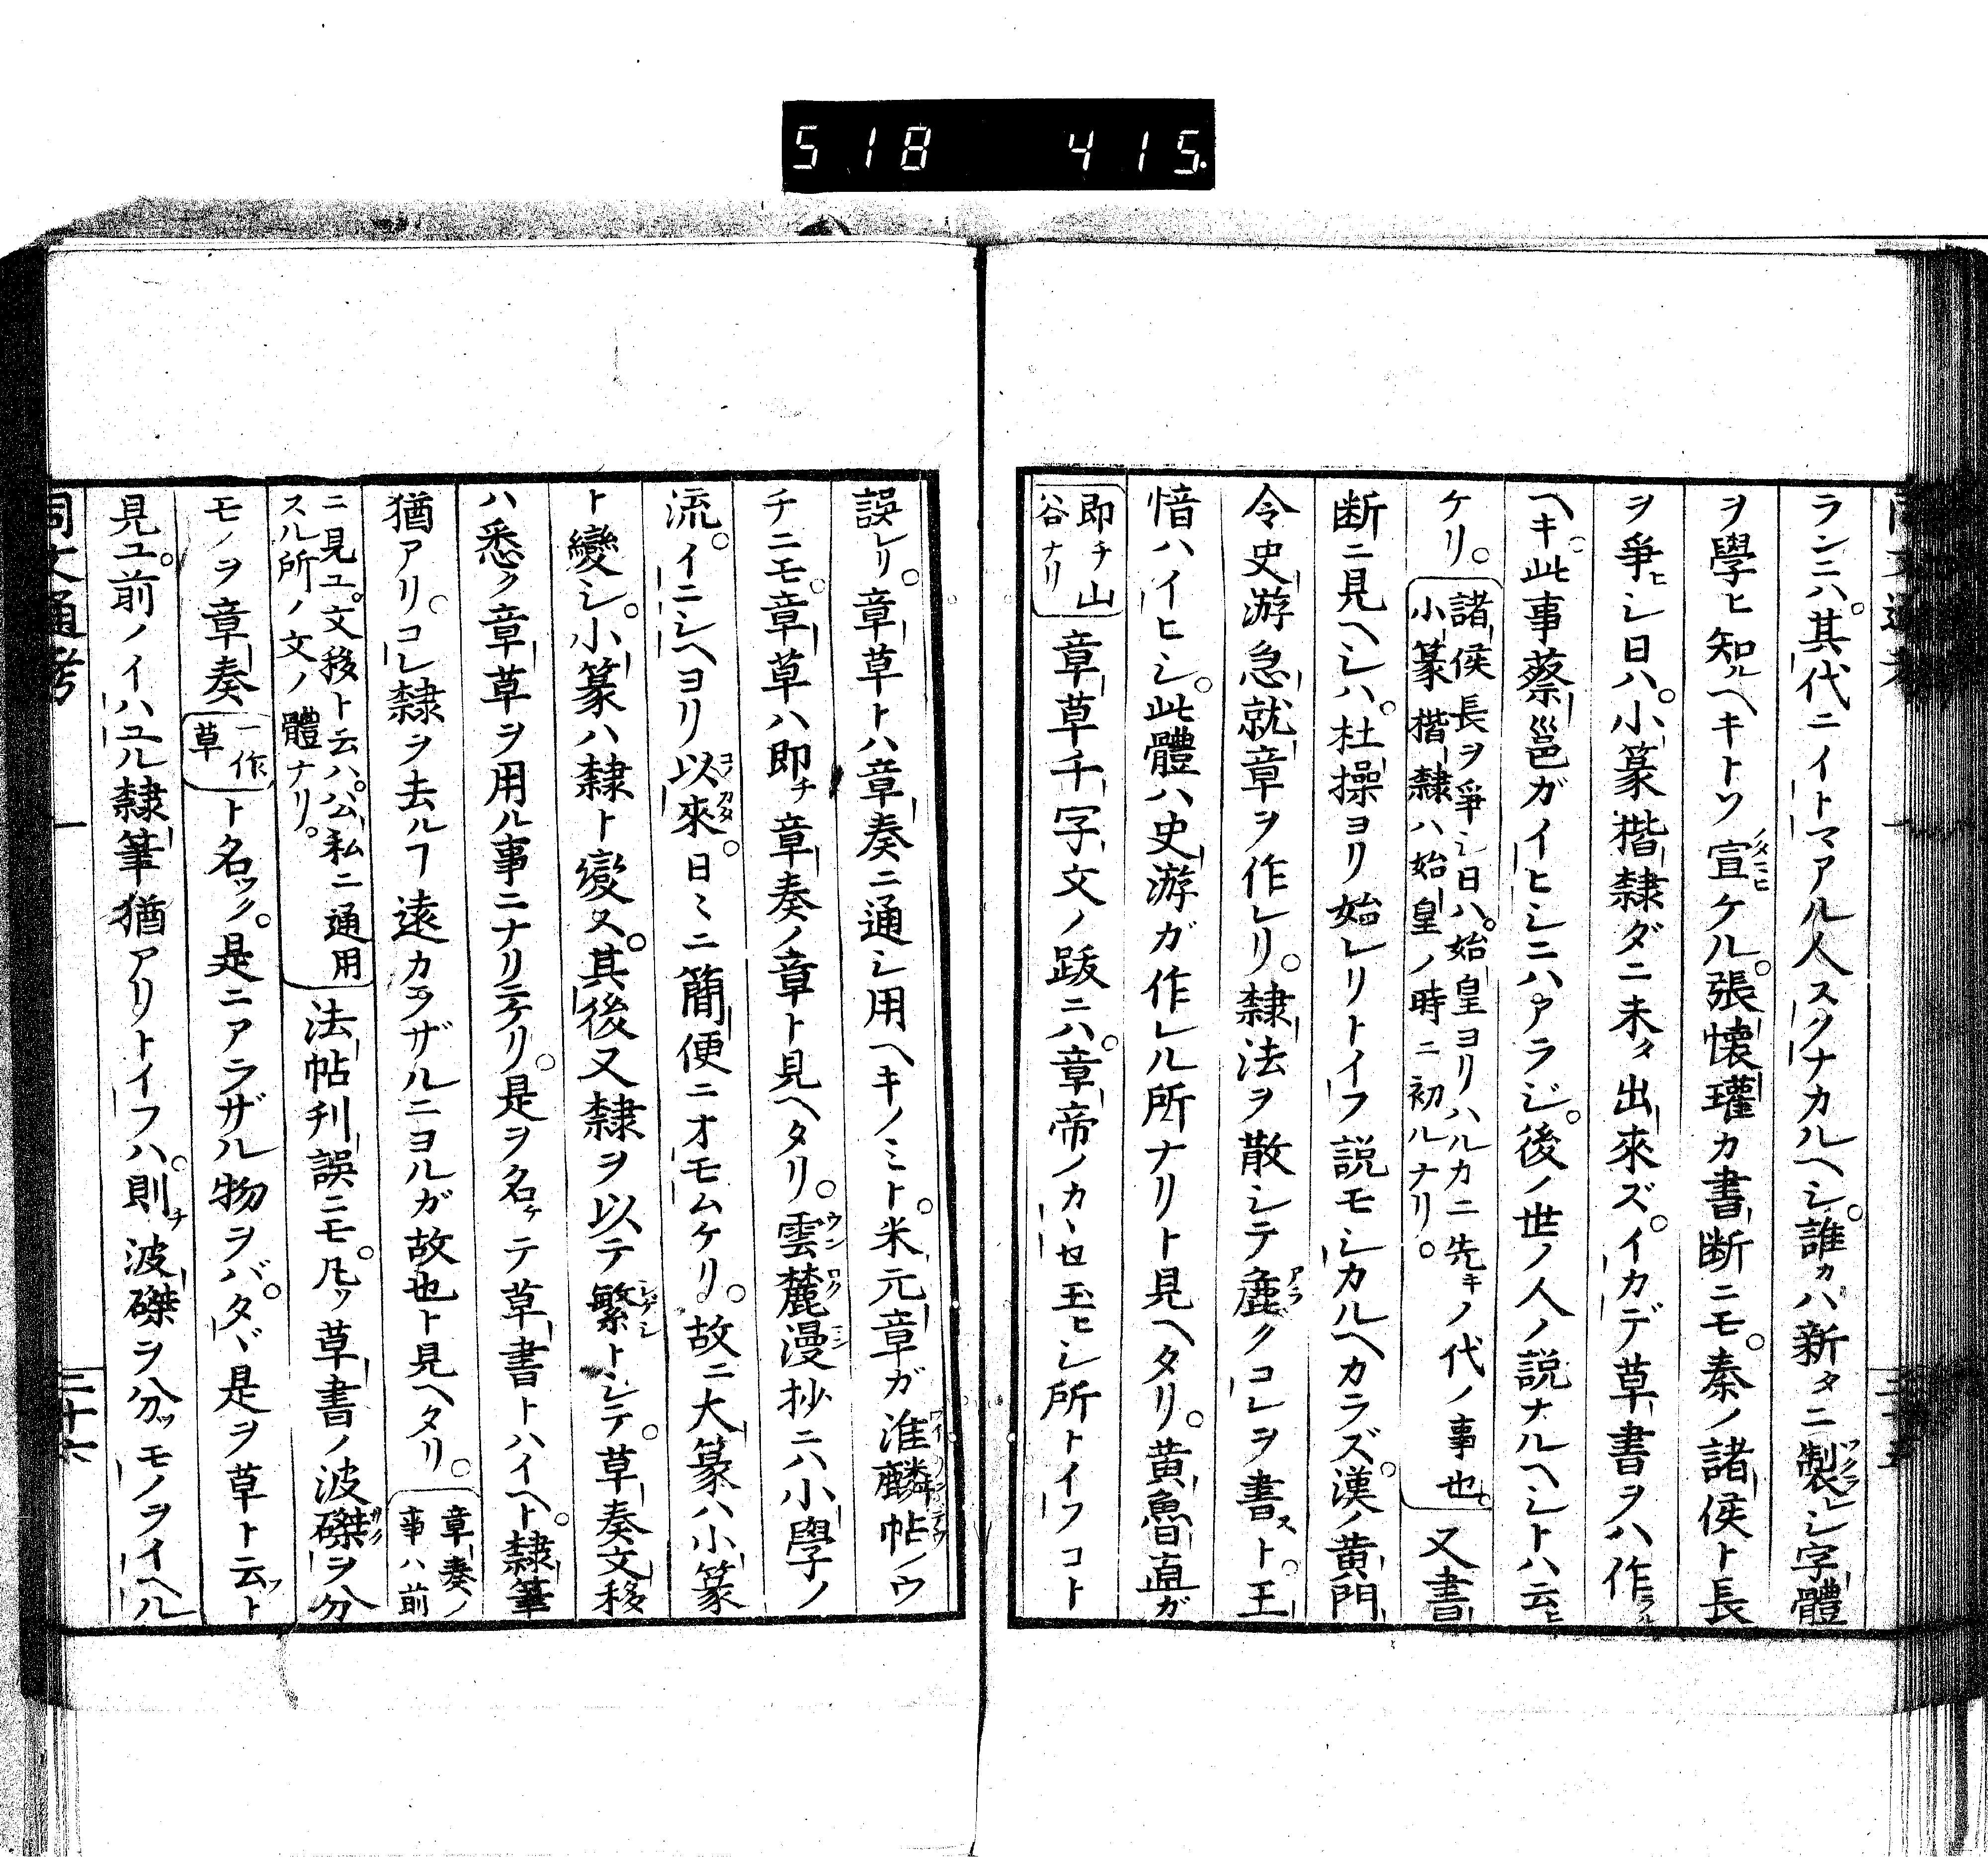 518 415
ランニハ。其代ニイトマアル人スクナカルヘシ。誰カハ新タニ製レシ字體
ヲ學ヒ知ルヘキトソ宣ケル。張懷瓘カ書断ニモ。秦ノ諸侯ト長
ヲ爭ヒシ日ハ。小篆楷隷ダニ未タ出來ズ。イカデ草書ヲハ作ラル
ヘキ。此事蔡邕ガイヒシニハアラジ。後ノ世ノ人ノ説ナルヘシトハ云ヒ
ケリ。諸侯長ヲ爭シ日ハ。始皇ヨリハルカニ先キノ代ノ事也。
小篆楷隷ハ始皇ノ時ニ初ルナリ。又書
断ニ見ヘシハ。杜操ヨリ始レリトイフ説モシカルヘカラズ。漢ノ黄門
令史游急就章ヲ作レリ。隷法ヲ散シテ麁クコレヲ書スト。王
愔ハイヒシ。此體ハ史游ガ作レル所ナリト見ヘタリ。黄魯直ガ
即チ山
谷ナリ 章草千字文ノ跋ニハ。章帝ノカヽセ玉ヒシ所トイフコト
誤レリ。章草トハ章奏ニ通シ用ヘキノミト。米元章ガ淮麟帖ノウ
チニモ。章草ハ即チ章奏ノ章ト見ヘタリ。雲麓漫抄ニハ小學ノ
流。イニシヘヨリ以來。日ミニ簡便ニオモムケリ。故ニ大篆ハ小篆
ト變シ。小篆ハ隷ト變ス。其後又隷ヲ以テ繁トシテ。草奏文移
ハ悉ク章草ヲ用ル事ニナリニケリ。是ヲ名ケテ草書トハイヘト。隷筆
猶アリ。コレ隷ヲ去ルヿ遠カラザルニヨルガ故也ト見ヘタリ。章奏ノ
事ハ前
ニ見ユ。文移ト云ハ。公私ニ通用
スル所ノ文ノ體ナリ。法帖刋誤ニモ。凡ソ草書ノ波磔ヲ分
モノヲ章奏一作
草ト名ツク。是ニアラザル物ヲバ。タヾ是ヲ草ト云フト
見ユ。前ノイハユル隷筆猶アリトイフハ。則チ波磔ヲ分ツモノヲイヘル
同文通考 一 三十六